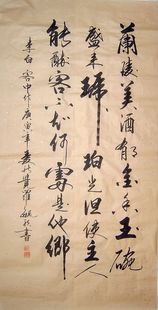 蘭陵美酒郁金香玉碗
盛來琥珀光但使主人
能醉客不知何處是他鄉
李白客中作庚寅年
書